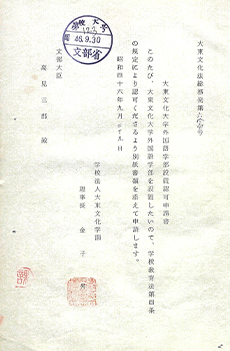 大東文化法総務発第
大東文化大学外国語学部設置認可申請書
このたび、大東文化大学外国語学部を設置したいので、学校教育法第四条
の規定により認可くださるよう別紙書類を添えて申請します。
昭和四十六年九月
学校法人大東文化学園
理事長 金子
文部大臣
高見三郎殿
46.9.30
文部省